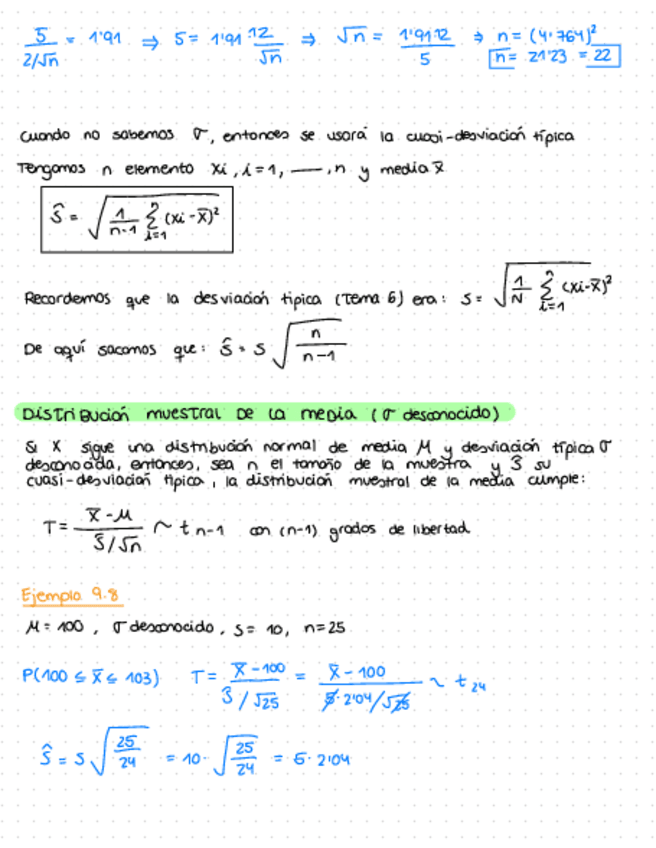 5/(2/√n) = 1'91 ⇒ 5 = 1'91 12/√n ⇒ √n = 1'91·12/5 ⇒ n = (4'764)²
n = 21'23 = 22
Cuando no sabemos σ, entonces se usará la cuasi-desviación típica
Tengamos n elemento xi, i=1, —, n y media x̄
ŝ = √(1/(n-1) Σ_{i=1}^{n} (xi - x̄)²)
Recordemos que la desviación típica (Tema 6) era: s = √(1/N Σ_{i=1}^{n} (xi-x̄)²)
De aquí sacamos que: ŝ = s √(n/(n-1))
Distribución muestral de la media (σ desconocido)
Si X sigue una distribución normal de media M y desviación típica σ
desconocida, entonces, sea n el tamaño de la muestra y ŝ su
cuasi-desviación típica, la distribución muestral de la media cumple:
T = (x̄ - M)/(ŝ/√n) ~ t n-1 con (n-1) grados de libertad
Ejemplo 9.8
M = 100, σ desconocido, s = 10, n=25
P(100 ≤ x̄ ≤ 103) T = (x̄ - 100)/(ŝ/√25) = (x̄ - 100)/(5·2'04/√25) ~ t 24
ŝ = s √(25/24) = 10·√(25/24) = 5·2'04